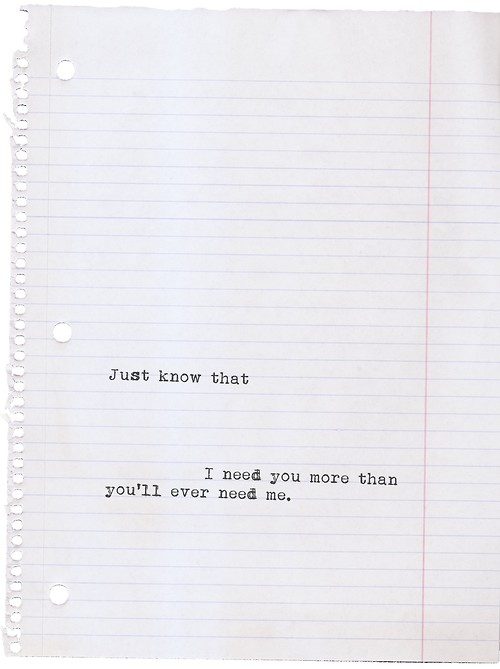 Just know that
I need you more than
you'll ever need me.